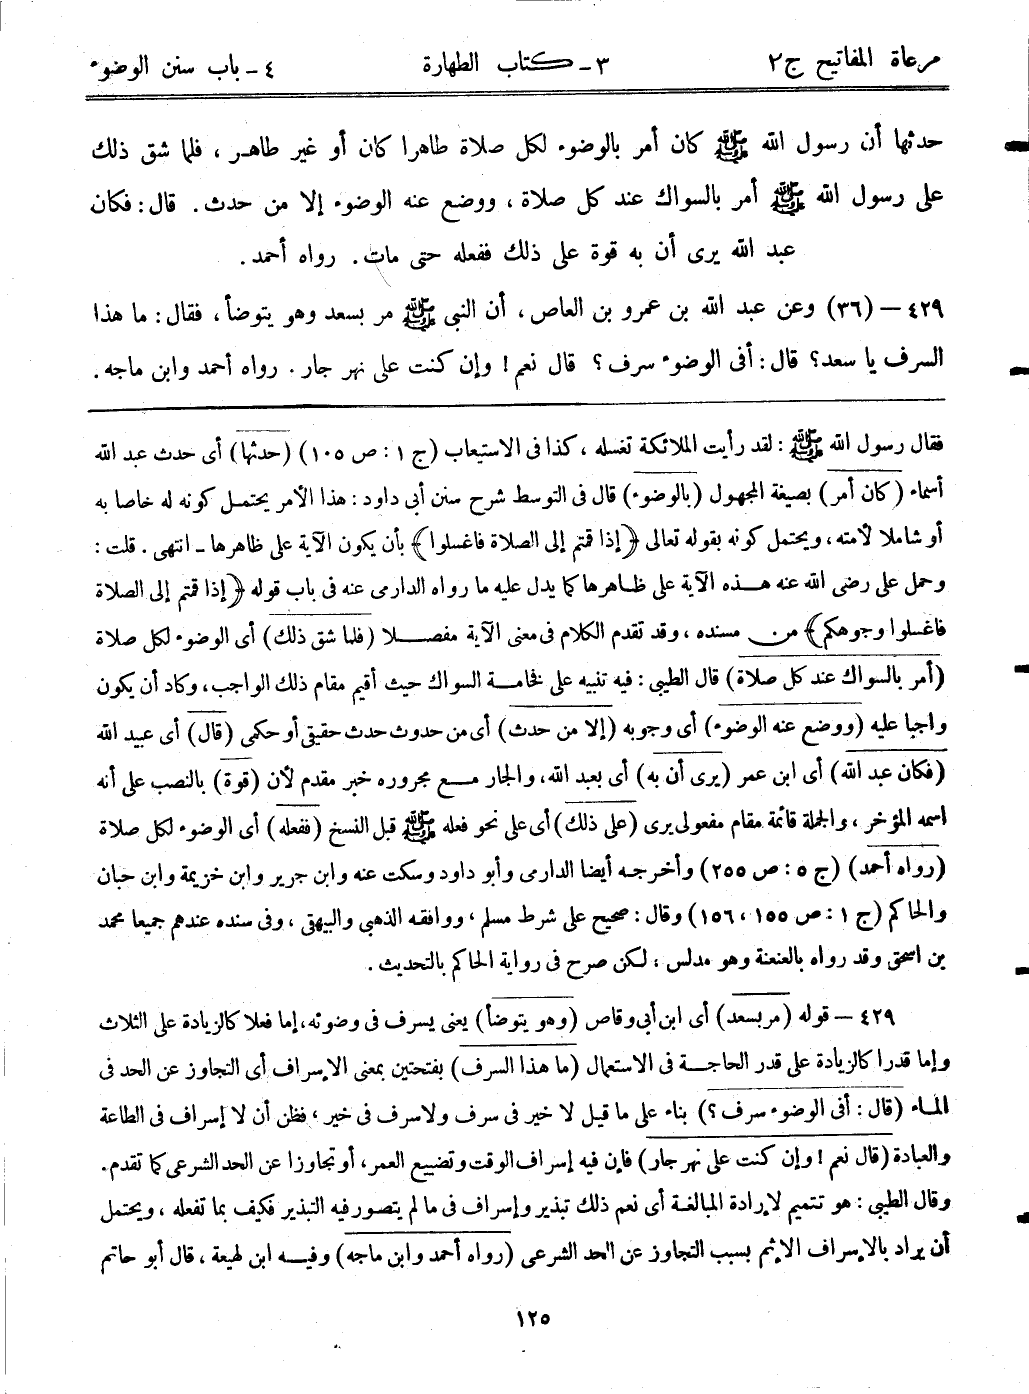 مرعاة المفاتيح ج ٢ ٣ - كتاب الطهارة ٤ - باب سنن الوضوء
حدثها أن رسول الله ﷺ كان أمر بالوضوء لكل صلاة طاهرا كان أو غير طاهر ، فلما شق ذلك
على رسول الله ﷺ أمر بالسواك عند كل صلاة ، ووضع عنه الوضوء إلا من حدث . قال : فكان
عبد الله يرى أن به قوة على ذلك ففعله حتى مات . رواه أحمد .
٤٢٩ - (٣٦) وعن عبد الله بن عمرو بن العاص ، أن النبى ﷺ مر بسعد وهو يتوضأ ، فقال : ما هذا
السرف يا سعد؟ قال : أفى الوضوء سرف ؟ قال نعم ! وإن كنت على نهر جار . رواه أحمد وابن ماجه .
فقال رسول الله ﷺ : لقد رأيت الملائكة تغسله ، كذا فى الاستيعاب (ج ١ : ص ١٠٥) (حدثها) أى حدث عبد الله
أسماء (كان أمر) بصيغة المجهول (بالوضوء) قال فى التوسط شرح سنن أبى داود : هذا الأمر يحتمل كونه له خاصا به
أو شاملا لأمته ، ويحتمل كونه بقوله تعالى ﴿إذا قمتم إلى الصلاة فاغسلوا﴾ بأن يكون الآية على ظاهرها - انتهى . قلت :
وحمل على رضى الله عنه هذه الآية على ظاهرها كما يدل عليه ما رواه الدارمى عنه فى باب قوله ﴿إذا قمتم إلى الصلاة
فاغسلوا وجوهكم﴾ من مسنده ، وقد تقدم الكلام فى معنى الآية مفصلا (فلما شق ذلك) أى الوضوء لكل صلاة
(أمر بالسواك عند كل صلاة) قال الطيبى : فيه تنبيه على فخامة السواك حيث أقيم مقام ذلك الواجب ، وكاد أن يكون
واجبا عليه (ووضع عنه الوضوء) أى وجوبه (إلا من حدث) أى من حدوث حدث حقيقى أو حكمى (قال) أى عبيد الله
(فكان عبد الله) أى ابن عمر (يرى أن به) أى بعبد الله ، والجار مع مجروره خبر مقدم لأن (قوة) بالنصب على أنه
اسمه المؤخر ، والجملة قائمة مقام مفعولى يرى (على ذلك) أى على نحو فعله ﷺ قبل النسخ (ففعله) أى الوضوء لكل صلاة
(رواه أحمد) (ج ٥ : ص ٢٥٥) وأخرجه أيضا الدارمى وأبو داود وسكت عنه وابن جرير وابن خزيمة وابن حبان
والحاكم (ج ١ : ص ١٥٥ ، ١٥٦) وقال : صحيح على شرط مسلم ، ووافقه الذهبى والبيهقى ، وفى سنده عندهم جميعا محمد
بن اسحق وقد رواه بالعنعنة وهو مدلس ، لكن صرح فى رواية الحاكم بالتحديث .
٤٢٩ - قوله (مر بسعد) أى ابن أبى وقاص (وهو يتوضأ) يعنى يسرف فى وضوئه ، إما فعلا كالزيادة على الثلاث
وإما قدرا كالزيادة على قدر الحاجة فى الاستعمال (ما هذا السرف) بفتحتين بمعنى الإسراف أى التجاوز عن الحد فى
الماء (قال : أفى الوضوء سرف ؟) بناء على ما قيل لا خير فى سرف ولا سرف فى خير ، فظن أن لا إسراف فى الطاعة
والعبادة (قال نعم ! وإن كنت على نهر جار) فإن فيه إسراف الوقت وتضييع العمر ، أو تجاوزا عن الحد الشرعى كما تقدم .
وقال الطيبى : هو تتميم لإرادة المبالغة أى نعم ذلك تبذير وإسراف فى ما لم يتصور فيه التبذير فكيف بما تفعله ، ويحتمل
أن يراد بالإسراف الاثم بسبب التجاوز عن الحد الشرعى (رواه أحمد وابن ماجه) وفيه ابن لهيعة ، قال أبو حاتم
١٢٥